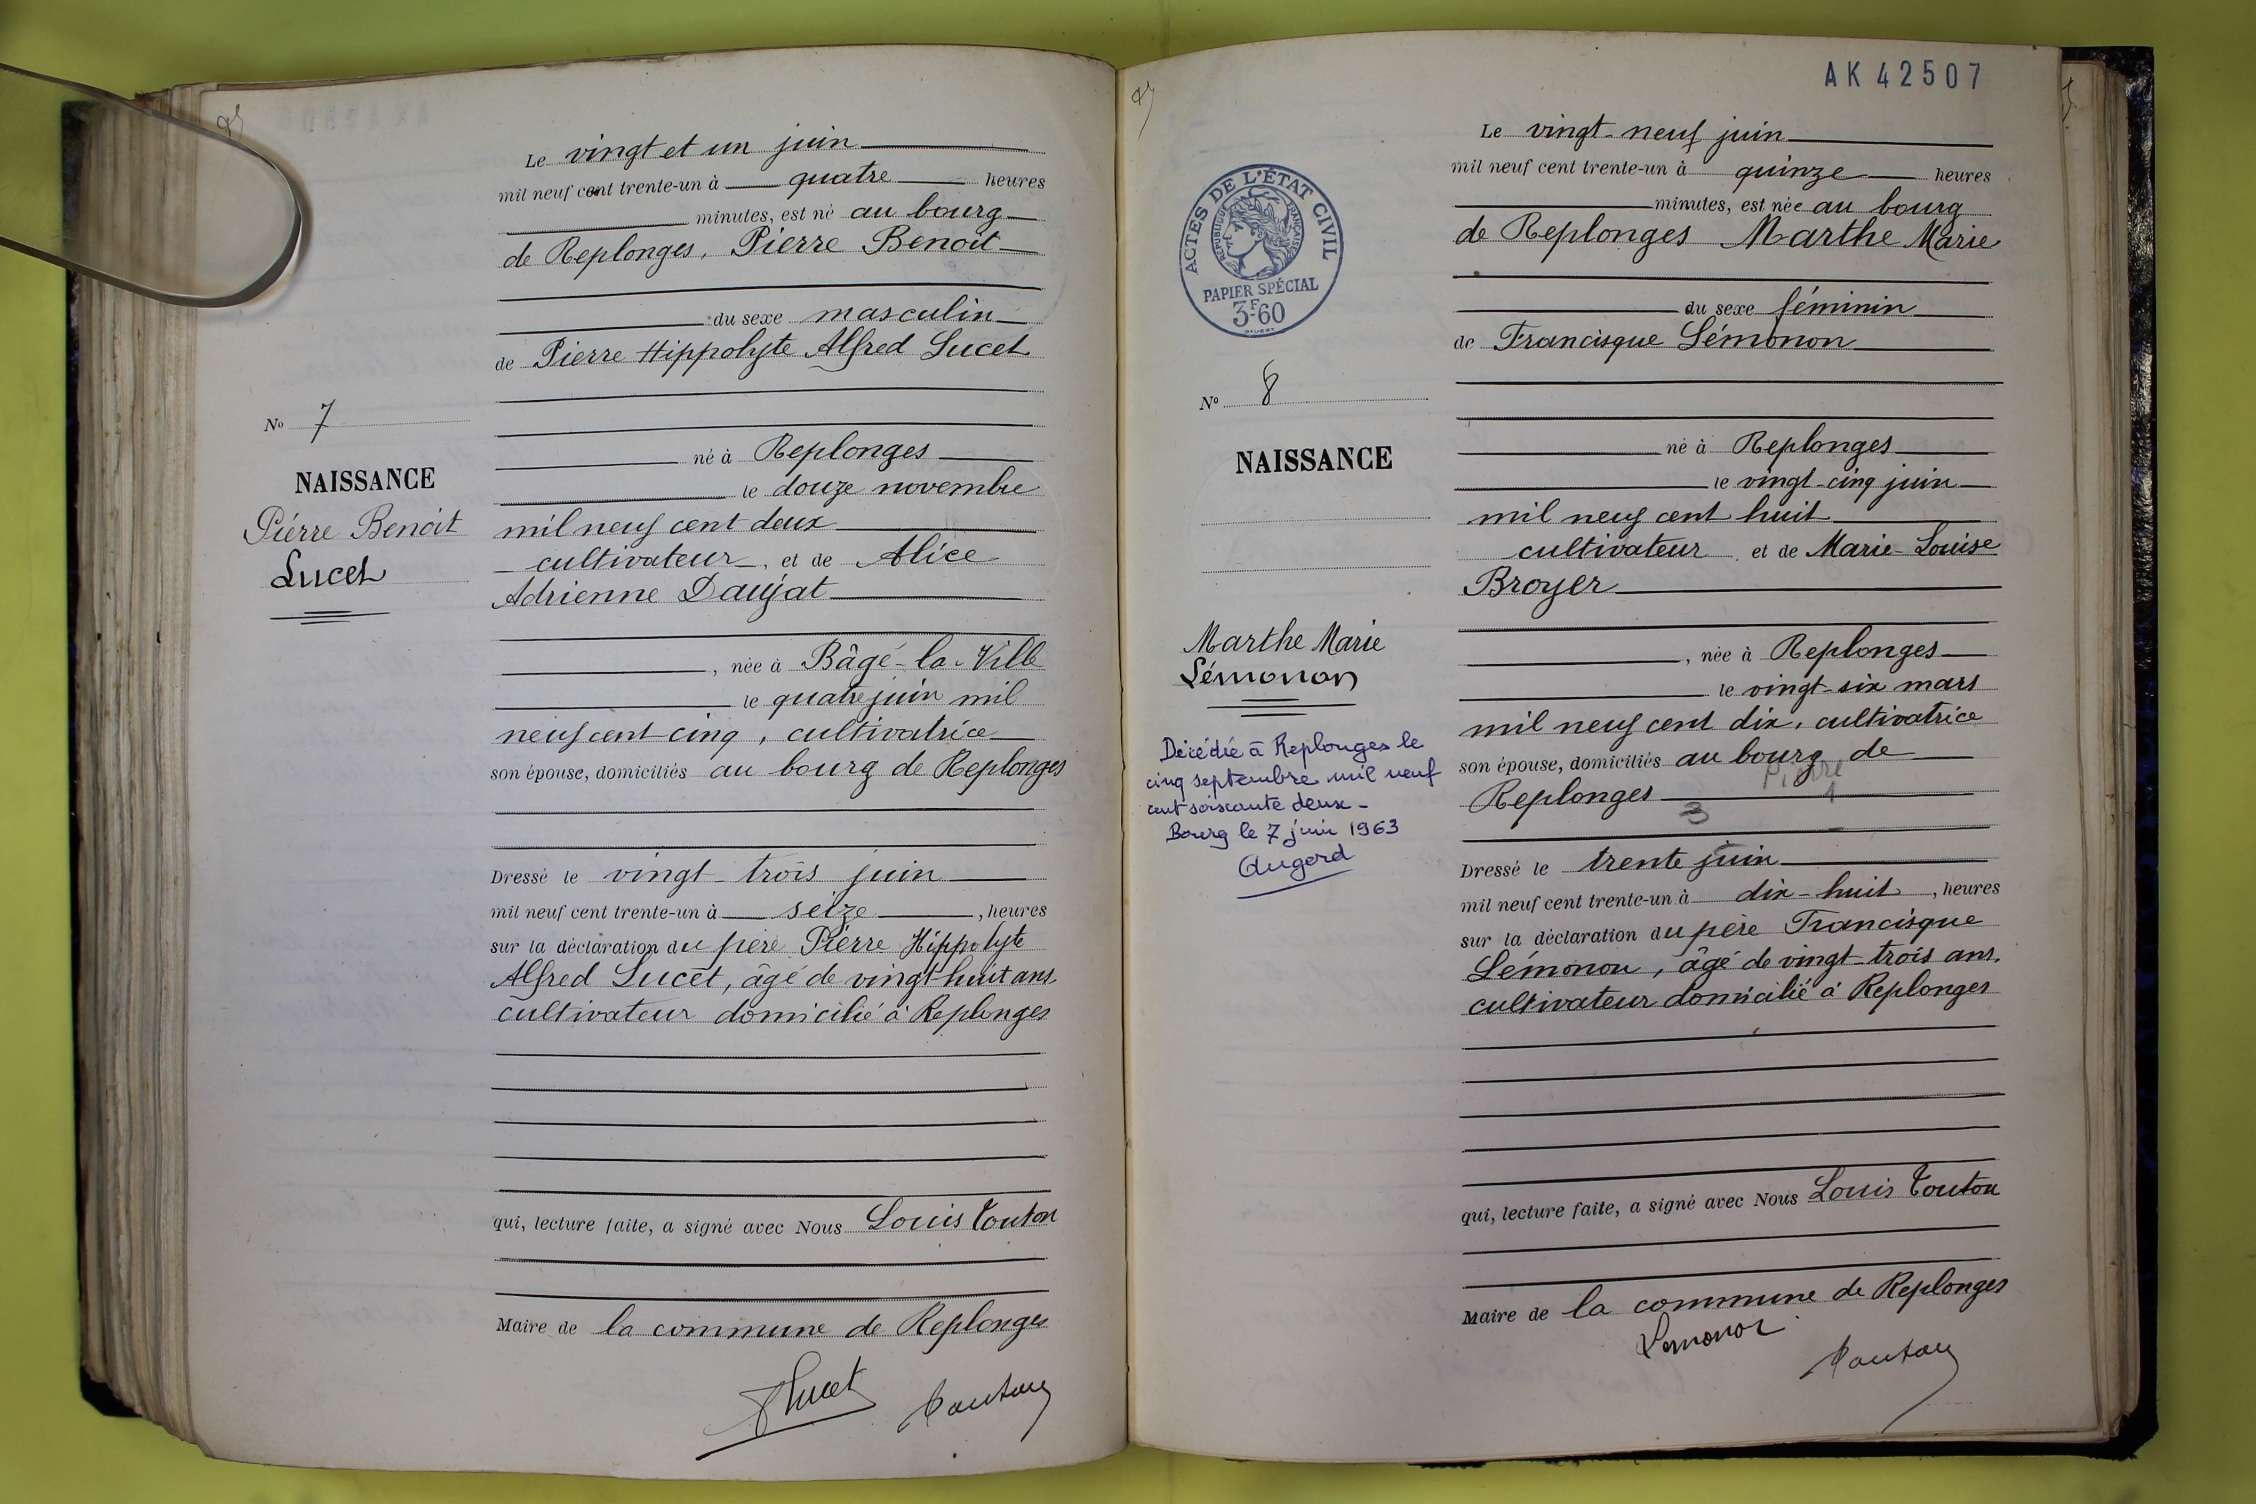 Le vingt et un juin
mil neuf cent trente-un à quatre heures
minutes, est né au bourg
de Replonges, Pierre Benoit
du sexe masculin
de Pierre Hippolyte Alfred Lucet
né à Replonges
le douze novembre
mil neuf cent deux
cultivateur, et de Alice
Adrienne Daujat
, née à Bâgé-la-Ville
le quatre juin mil
neuf cent cinq, cultivatrice
son épouse, domiciliés au bourg de Replonges
Dressé le vingt-trois juin
mil neuf cent trente-un à seize, heures
sur la déclaration du père Pierre Hippolyte
Alfred Lucet, âgé de vingt huit ans
cultivateur domicilié à Replonges
qui, lecture faite, a signé avec Nous Louis Touton
Maire de la commune de Replonges
Lucet Touton
No 7
NAISSANCE
Pierre Benoit
Lucet
AK 42507
Le vingt-neuf juin
mil neuf cent trente-un à quinze heures
minutes, est née au bourg
de Replonges Marthe Marie
du sexe féminin
de Francisque Lémonon
né à Replonges
le vingt-cinq juin
mil neuf cent huit
cultivateur et de Marie-Louise
Broyer
, née à Replonges
le vingt-six mars
mil neuf cent dix, cultivatrice
son épouse, domiciliés au bourg de
Pierre
Replonges
3 1
Dressé le trente juin
mil neuf cent trente-un à dix-huit, heures
sur la déclaration du père Francisque
Lémonon, âgé de vingt-trois ans.
cultivateur domicilié à Replonges
qui, lecture faite, a signé avec Nous Louis Touton
Maire de la commune de Replonges
Lemonon Touton
ACTES DE L'ÉTAT CIVIL
RÉPUBLIQUE FRANÇAISE
PAPIER SPÉCIAL
3F.60
No 8
NAISSANCE
Marthe Marie
Lémonon
Décédée à Replonges le
cinq septembre mil neuf
cent soixante deux-
Bourg le 7 juin 1963
Augerd